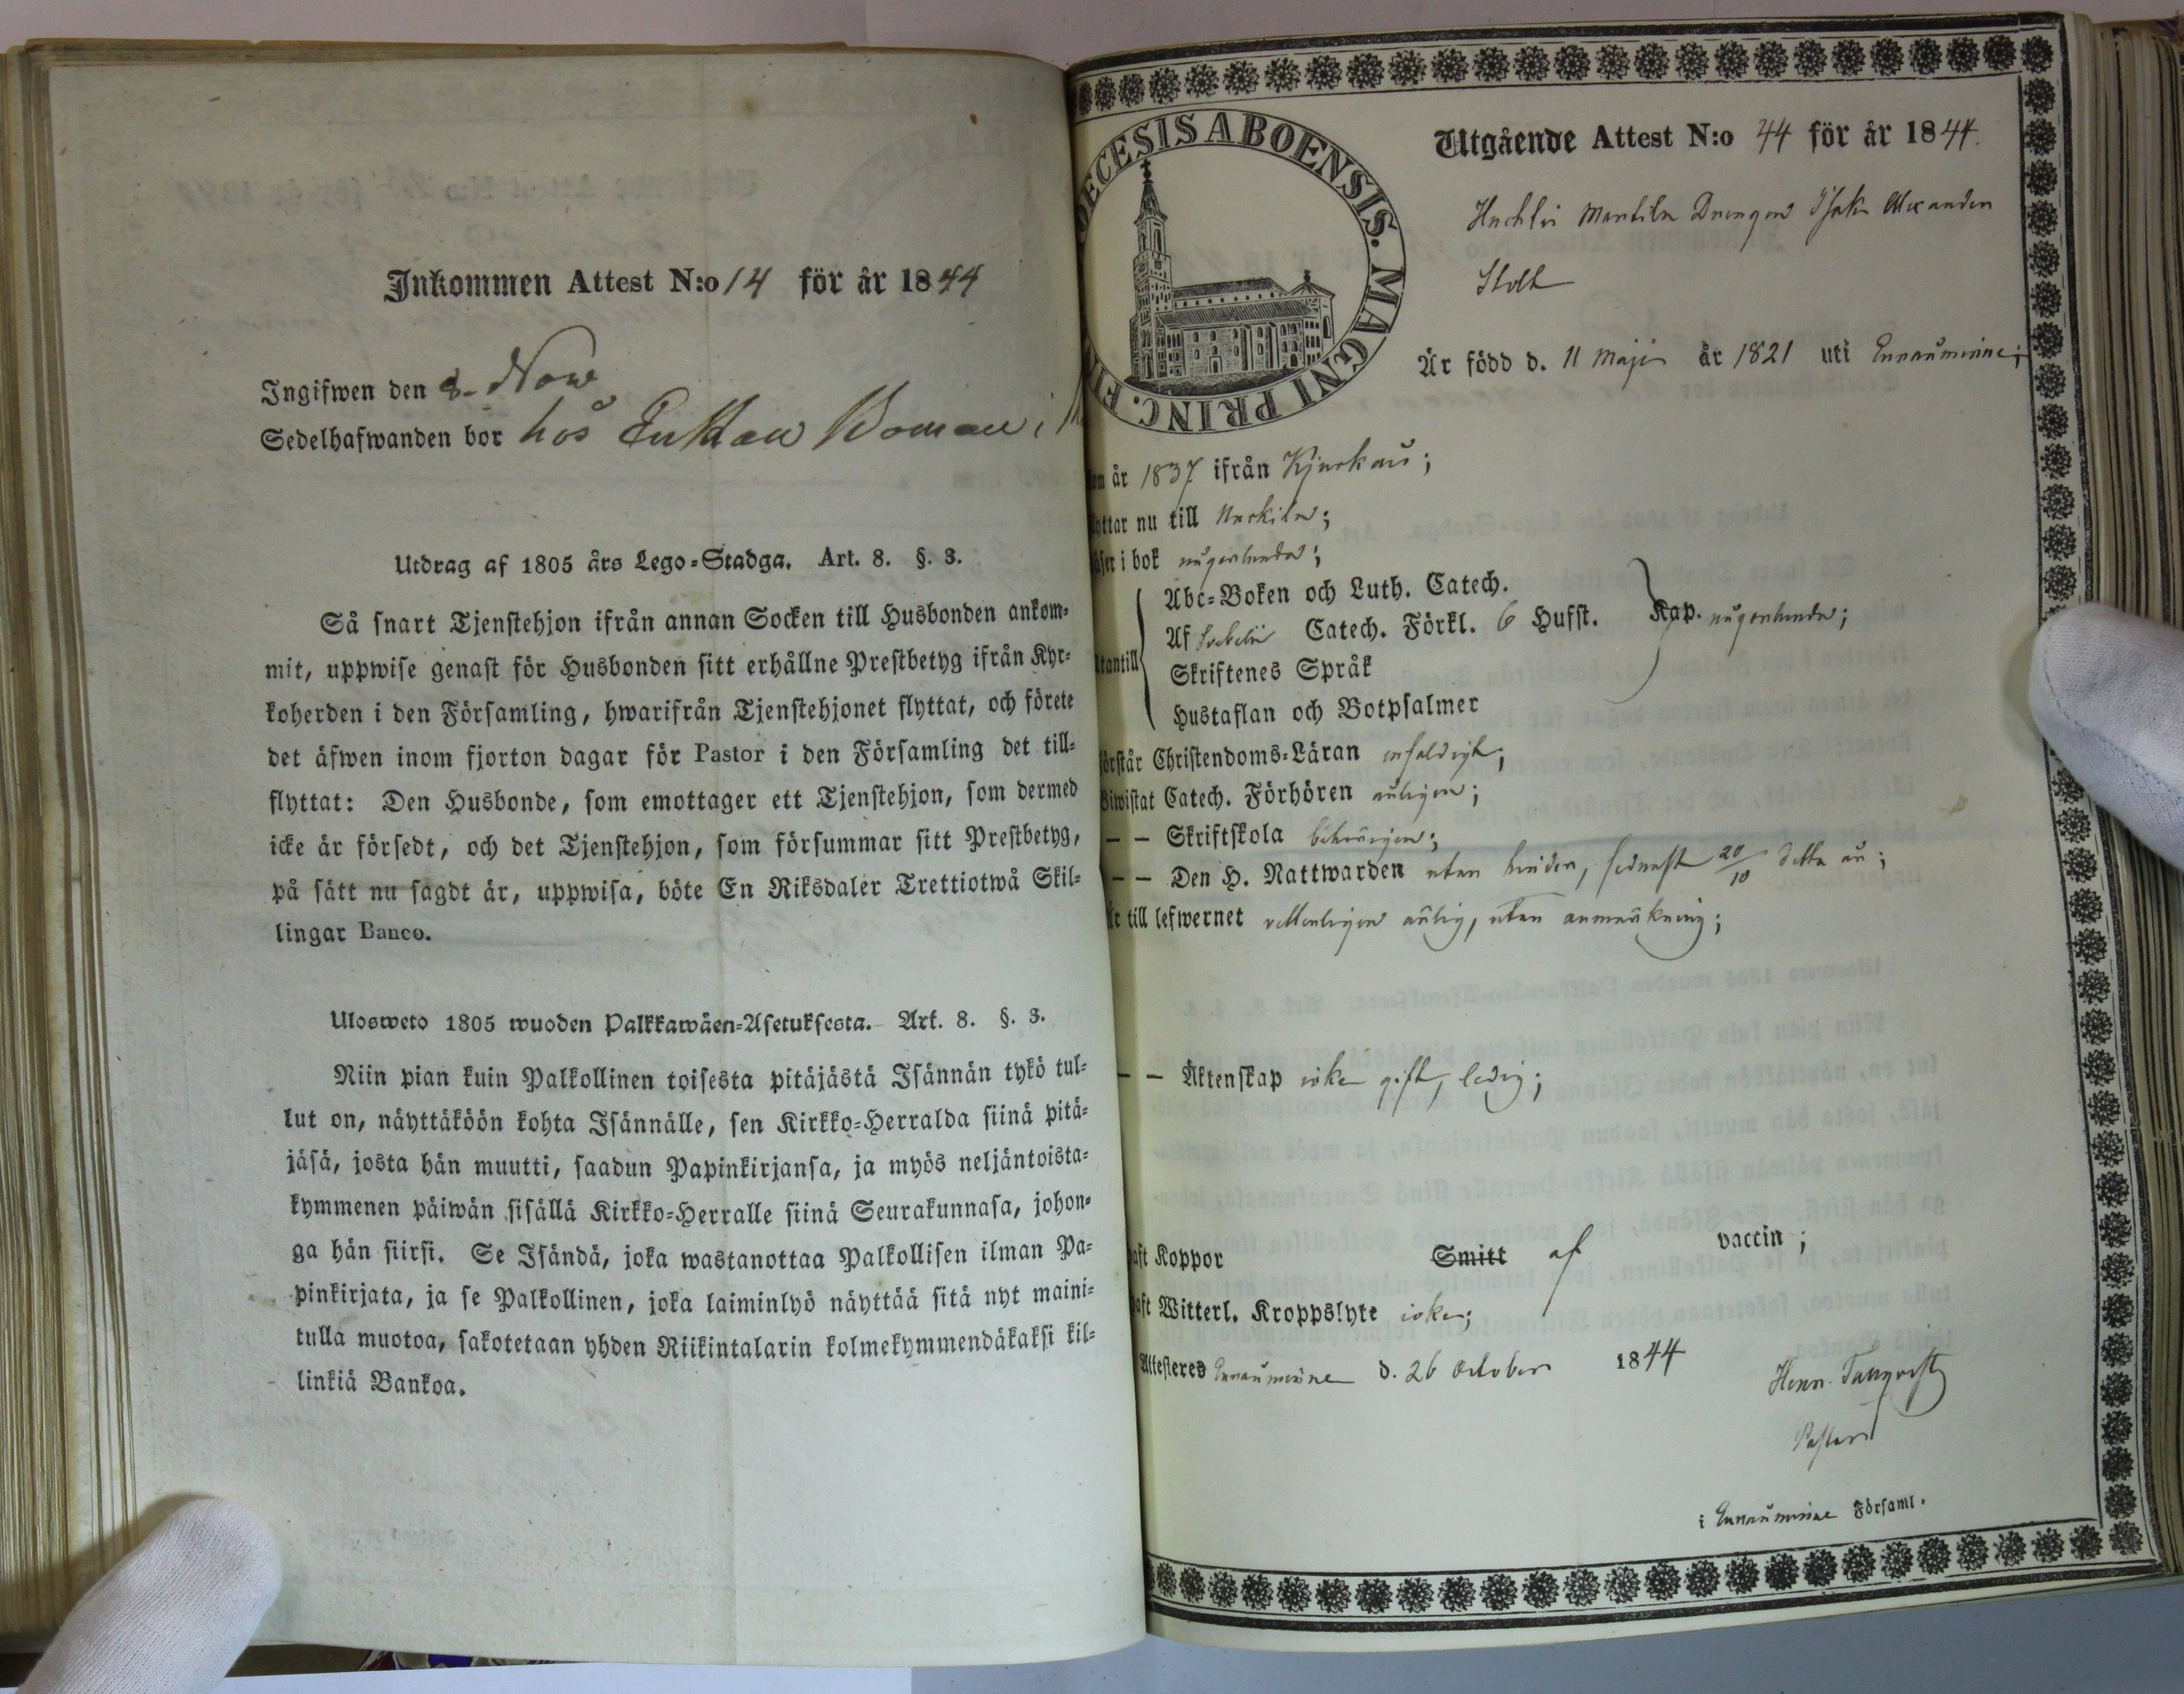 Inkommen Attest N:o 14 för år 1844
Ingifwen den 8 Nov
Sedelhafwanden bor hos Gustaw Boman i
Utdrag af 1805 års Lego-Stadga. Art. 8. §. 3.
Så snart Tjenstehjon ifrån annan Socken till Husbonden ankom-
mit, uppwise genast för Husbonden sitt erhållne Prestbetyg ifrån Kyr-
koherden i den Församling, hwarifrån Tjenstehjonet flyttat, och förete
det äfwen inom fjorton dagar för Pastor i den Församling det till-
flyttat: Den Husbonde, som emottager ett Tjenstehjon, som dermed
icke är försedt, och det Tjenstehjon, som försummar sitt Prestbetyg,
på sätt nu sagdt är, uppwisa, böte En Riksdaler Trettiotwå Skil-
lingar Banco.
Ulosweto 1805 wuoden Palkkawäen-Asetuksesta. Art. 8. §. 3.
Niin pian kuin Palkollinen toisesta pitäjästä Isännän tykö tul-
lut on, näyttäköön kohta Isännälle, sen Kirkko-Herralda siinä pitä-
jäsä, josta hän muutti, saadun Papinkirjansa, ja myös neljäntoista-
kymmenen päiwän sisällä Kirkko-Herralle siinä Seurakunnasa, johon-
ga hän siirsi. Se Isändä, joka wastanottaa Palkollisen ilman Pa-
pinkirjata, ja se Palkollinen, joka laiminlyö näyttää sitä nyt maini-
tulla muotoa, sakotetaan yhden Riikintalarin kolmekymmendäkaksi kil-
linkiä Bankoa.
DECESIS ABOENSIS. MAGNI PRINC. F
Utgående Attest N:o 44 för år 1844.
Drengen Isak Alexander
Stolt
Är född d. 11 Maji år 1821 uti Ennäuminne;
om år 1837 ifrån Kjurkais;
yttar nu till Nerkila;
äser i bok någorlunda;
Abc-Boken och Luth. Catech.
Af Svebelii Catech. Förkl. 6 Hufst. Kap. någorlunda;
tantill
Skriftenes Språk
Hustaflan och Botpsalmer
förstår Christendoms-Läran enfaldigt;
Biwistat Catech. Förhören årligen;
— — Skriftskola behörigen;
— — Den H. Nattwarden utan hinder, sednast 20/10 detta år;
Är till lefwernet vetterligen ärlig, utan anmärkning;
— — Äktenskap icke gift, ledig;
haft Koppor Smitt af vaccin;
haft Witterl. Kroppslyte icke;
Attesteres Ennäuminne d. 26 October 1844
Henr. Tallqvist
Pastor
i Ennäuminne Församl.